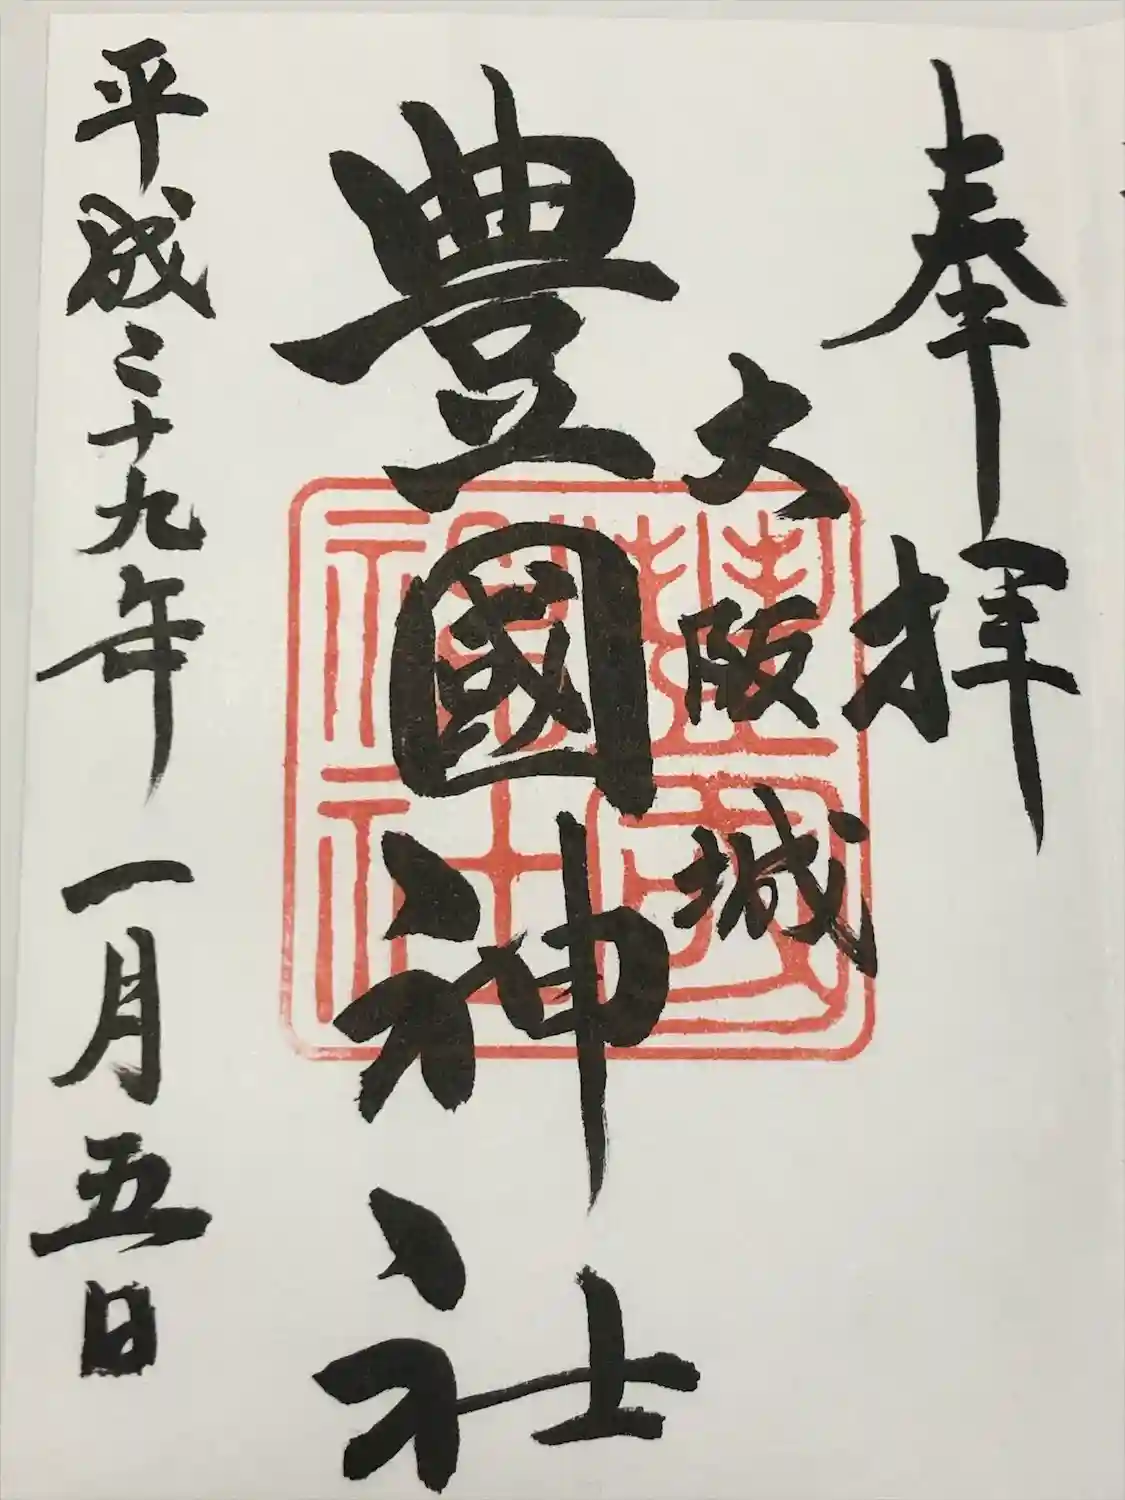 奉拝
大阪城
豊國神社
平成二十九年一月五日
豊國神社